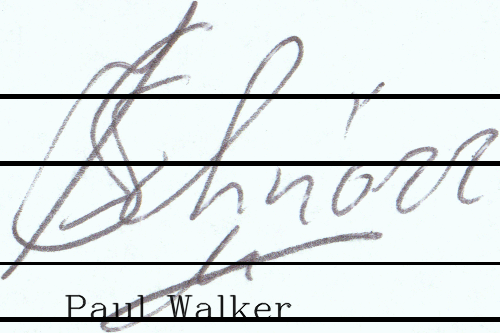 Schnörr
Paul Walker